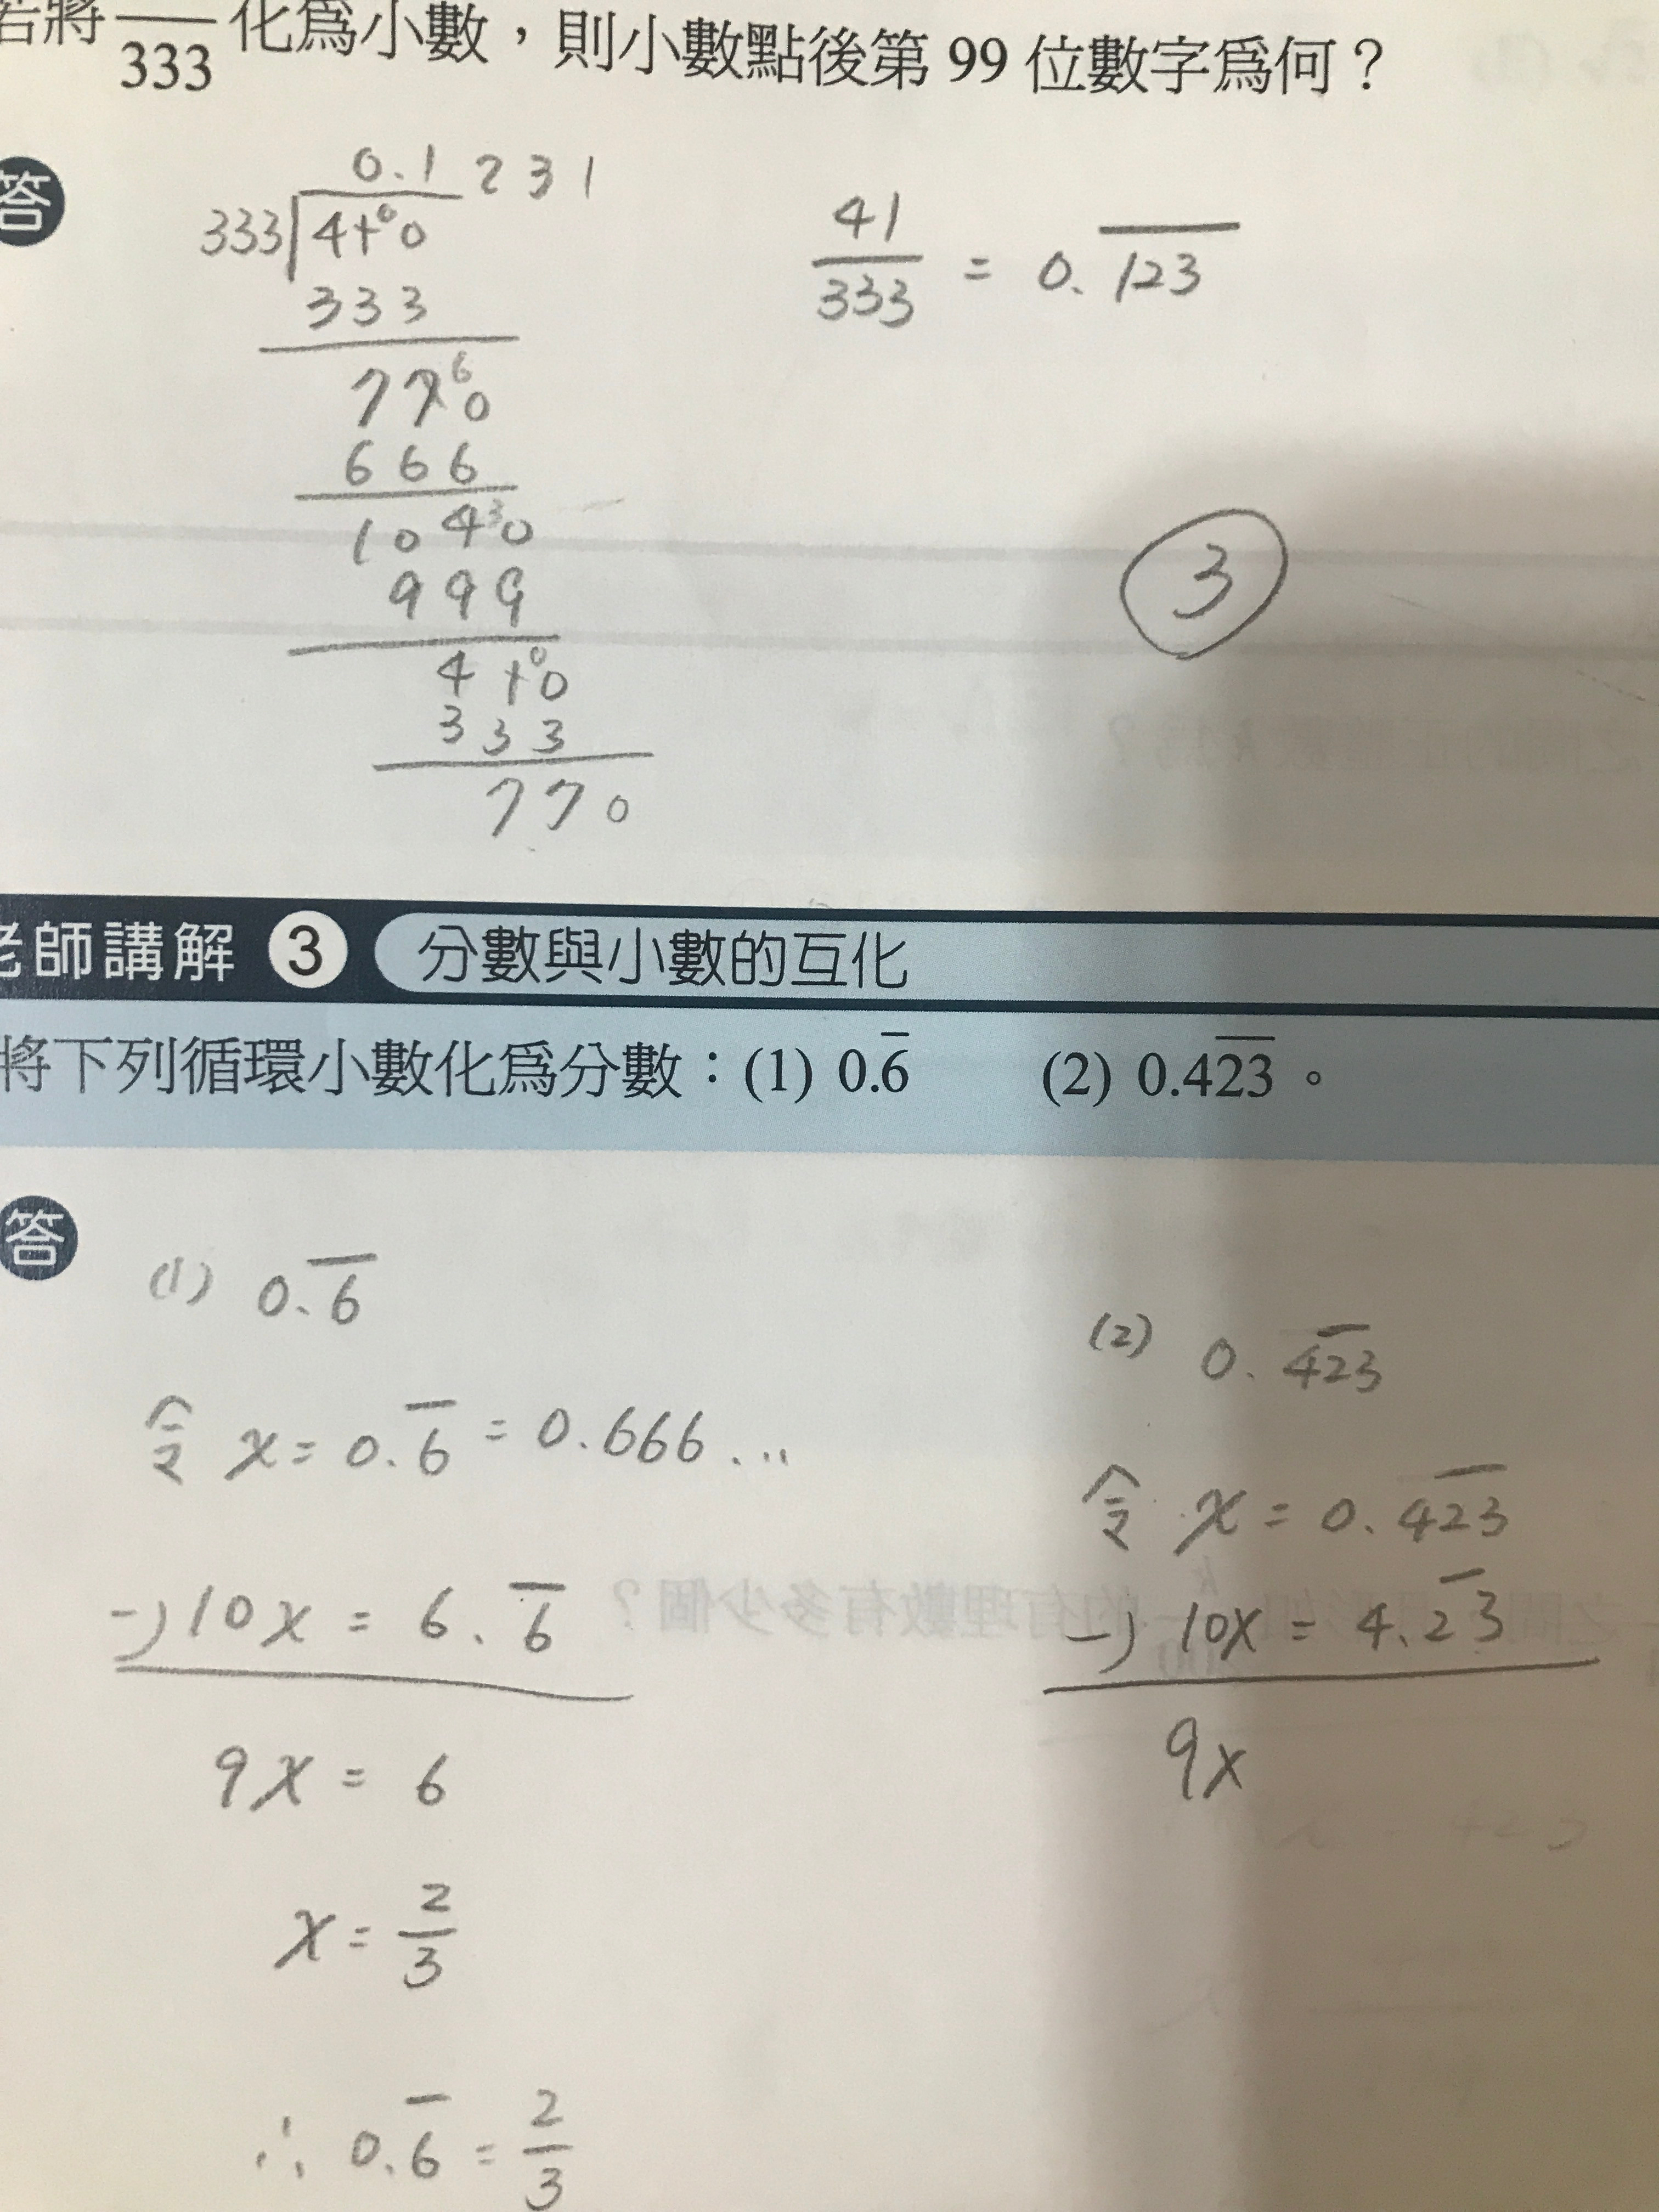 若將 ─/333 化為小數，則小數點後第 99 位數字為何？
答
0.1 2 3 1
333 4 1 0 0
3 3 3
7 7 6 0
6 6 6
1 0 4 3 0
9 9 9
4 1 0 0
3 3 3
7 7 0
41/333 = 0.\overline{123}
3
老師講解 3 分數與小數的互化
將下列循環小數化為分數：(1) 0.\overline{6} (2) 0.4\overline{23}。
答
(1) 0.\overline{6}
令 x = 0.\overline{6} = 0.666...
-) 10x = 6.\overline{6}
9x = 6
x = 2/3
∴ 0.\overline{6} = 2/3
(2) 0.4\overline{23}
令 x = 0.4\overline{23}
-) 10x = 4.\overline{23}
9x